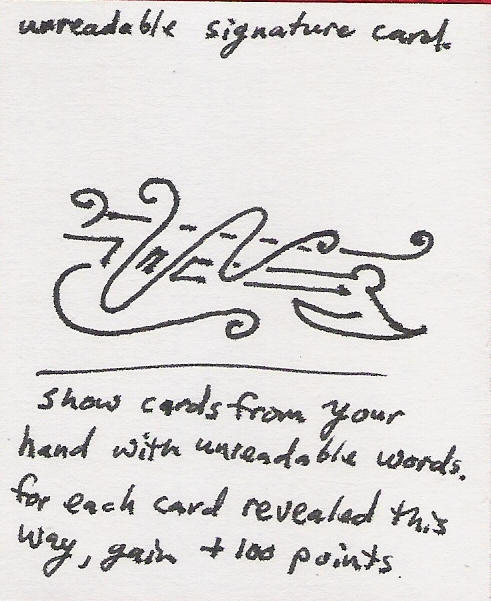 unreadable signature card.
show cards from your
hand with unreadable words.
for each card revealed this
way, gain +100 points